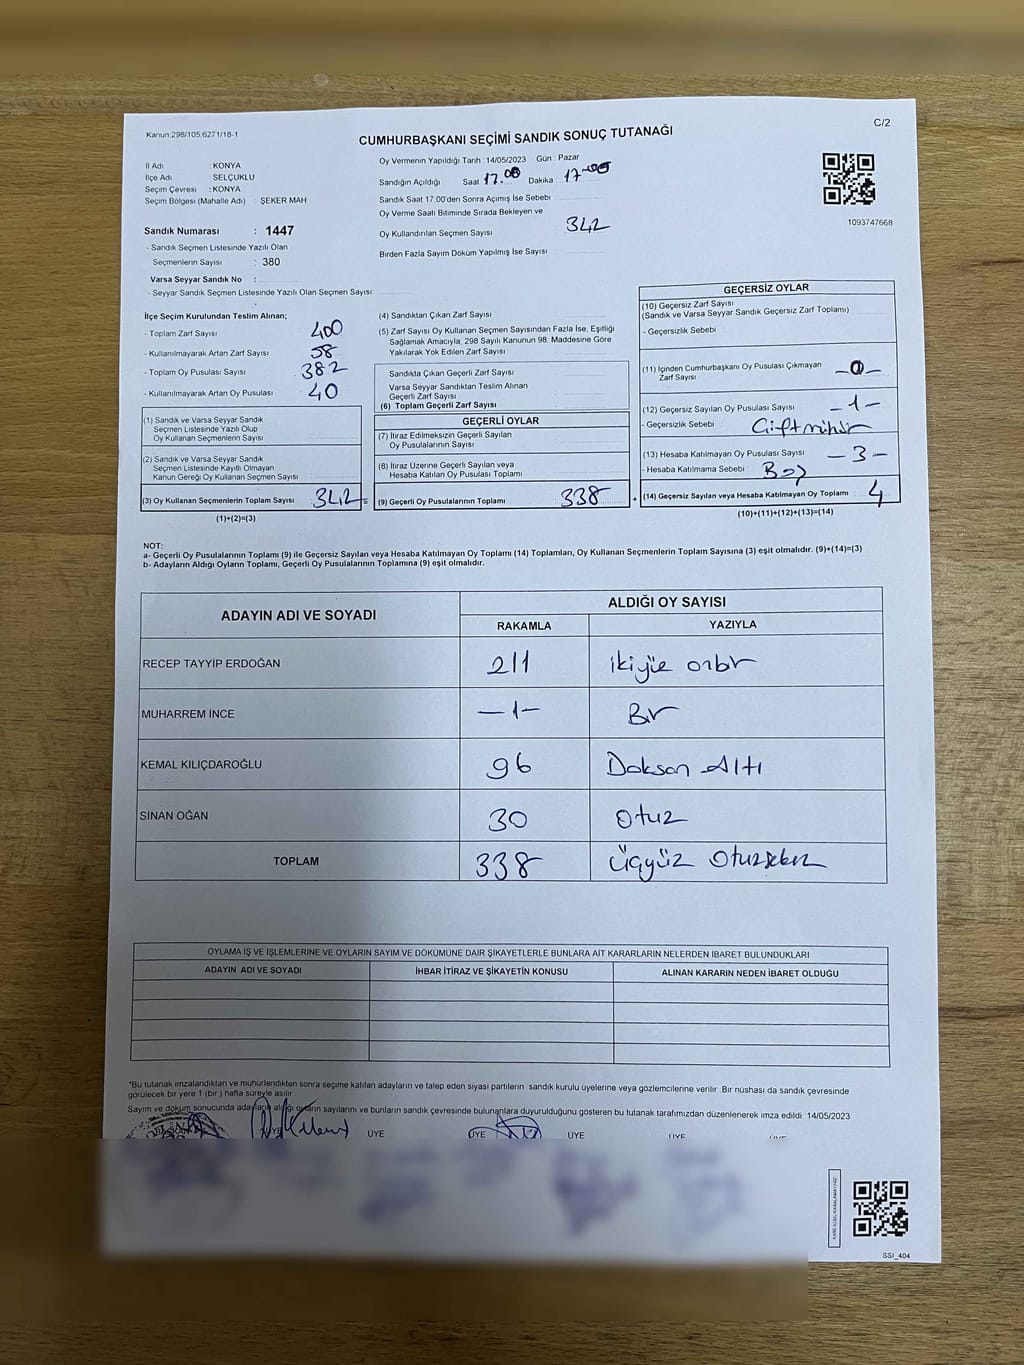 Kanun:298/105,6271/18-1
C/2
CUMHURBAŞKANI SEÇİMİ SANDIK SONUÇ TUTANAĞI
İl Adı KONYA
İlçe Adı SELÇUKLU
Seçim Çevresi : KONYA
Seçim Bölgesi (Mahalle Adı) : ŞEKER MAH
Sandık Numarası : 1447
- Sandık Seçmen Listesinde Yazılı Olan
Seçmenlerin Sayısı : 380
Varsa Seyyar Sandık No :
- Seyyar Sandık Seçmen Listesinde Yazılı Olan Seçmen Sayısı:
Oy Vermenin Yapıldığı Tarih : 14/05/2023 Gün : Pazar
Sandığın Açıldığı Saat 17.00 Dakika : 17-05
Sandık Saat 17.00'den Sonra Açımış İse Sebebi
Oy Verme Saati Bitiminde Sırada Bekleyen ve
Oy Kullandırılan Seçmen Sayısı 342
Birden Fazla Sayım Döküm Yapılmış İse Sayısı
1093747668
İlçe Seçim Kurulundan Teslim Alınan;
- Toplam Zarf Sayısı 400
- Kullanılmayarak Artan Zarf Sayısı 58
- Toplam Oy Pusulası Sayısı 382
- Kullanılmayarak Artan Oy Pusulası 40
(1) Sandık ve Varsa Seyyar Sandık
Seçmen Listesinde Yazılı Olup
Oy Kullanan Seçmenlerin Sayısı
(2) Sandık ve Varsa Seyyar Sandık
Seçmen Listesinde Kayıtlı Olmayan
Kanun Gereği Oy Kullanan Seçmen Sayısı
(3) Oy Kullanan Seçmenlerin Toplam Sayısı 342 =
(1)+(2)=(3)
(4) Sandıktan Çıkan Zarf Sayısı
(5) Zarf Sayısı Oy Kullanan Seçmen Sayısından Fazla İse, Eşitliği
Sağlamak Amacıyla, 298 Sayılı Kanunun 98. Maddesine Göre
Yakılarak Yok Edilen Zarf Sayısı
Sandıkta Çıkan Geçerli Zarf Sayısı
Varsa Seyyar Sandıktan Teslim Alınan
Geçerli Zarf Sayısı
(6) Toplam Geçerli Zarf Sayısı
GEÇERLİ OYLAR
(7) İtiraz Edilmeksizin Geçerli Sayılan
Oy Pusulalarının Sayısı
(8) İtiraz Üzerine Geçerli Sayılan veya
Hesaba Katılan Oy Pusulası Toplamı
(9) Geçerli Oy Pusulalarının Toplamı 338 +
GEÇERSİZ OYLAR
(10) Geçersiz Zarf Sayısı
(Sandık ve Varsa Seyyar Sandık Geçersiz Zarf Toplamı)
- Geçersizlik Sebebi
(11) İçinden Cumhurbaşkanı Oy Pusulası Çıkmayan
Zarf Sayısı -0-
(12) Geçersiz Sayılan Oy Pusulası Sayısı -1-
- Geçersizlik Sebebi Çift mühür
(13) Hesaba Katılmayan Oy Pusulası Sayısı -3-
- Hesaba Katılmama Sebebi Boş
(14) Geçersiz Sayılan veya Hesaba Katılmayan Oy Toplamı 4
(10)+(11)+(12)+(13)=(14)
NOT:
a- Geçerli Oy Pusulalarının Toplamı (9) ile Geçersiz Sayılan veya Hesaba Katılmayan Oy Toplamı (14) Toplamları, Oy Kullanan Seçmenlerin Toplam Sayısına (3) eşit olmalıdır. (9)+(14)=(3)
b- Adayların Aldığı Oyların Toplamı, Geçerli Oy Pusulalarının Toplamına (9) eşit olmalıdır.
ADAYIN ADI VE SOYADI
ALDIĞI OY SAYISI
RAKAMLA YAZIYLA
RECEP TAYYİP ERDOĞAN 211 ikiyüz onbir
MUHARREM İNCE -1- Bir
KEMAL KILIÇDAROĞLU 96 Doksan Altı
SİNAN OĞAN 30 Otuz
TOPLAM 338 Üçyüz Otuzsekiz
OYLAMA İŞ VE İŞLEMLERİNE VE OYLARIN SAYIM VE DÖKÜMÜNE DAİR ŞİKAYETLERLE BUNLARA AİT KARARLARIN NELERDEN İBARET BULUNDUKLARI
ADAYIN ADI VE SOYADI İHBAR İTİRAZ VE ŞİKAYETİN KONUSU ALINAN KARARIN NEDEN İBARET OLDUĞU
*Bu tutanak imzalandıktan ve mühürlendikten sonra seçime katılan adayların ve talep eden siyasi partilerin sandık kurulu üyelerine veya gözlemcilerine verilir. Bir nüshası da sandık çevresinde
görülecek bir yere 1 (bir) hafta süreyle asılır
Sayım ve döküm sonucunda adayların aldığı oyların sayılarını ve bunların sandık çevresinde bulunanlara duyurulduğunu gösteren bu tutanak tarafımızdan düzenlenerek imza edildi. 14/05/2023
ÜYE ÜYE ÜYE ÜYE
SSI_404